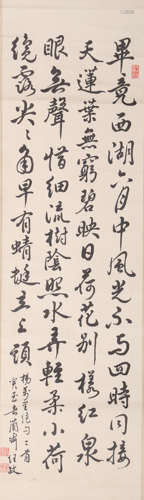 畢竟西湖六月中風光不與四時同接
天蓮葉無窮碧映日荷花別樣紅泉
眼無聲惜細流樹陰照水弄輕柔小荷
纔露尖〻角早有蜻蜓立上頭
楊萬里絕句二首